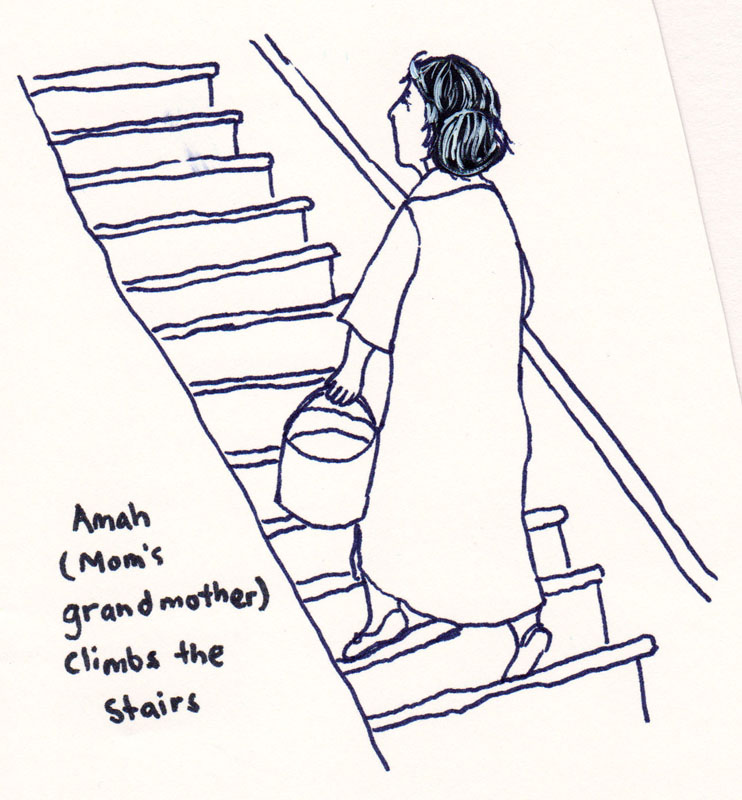 Amah
(Mom's
grandmother)
climbs the
stairs